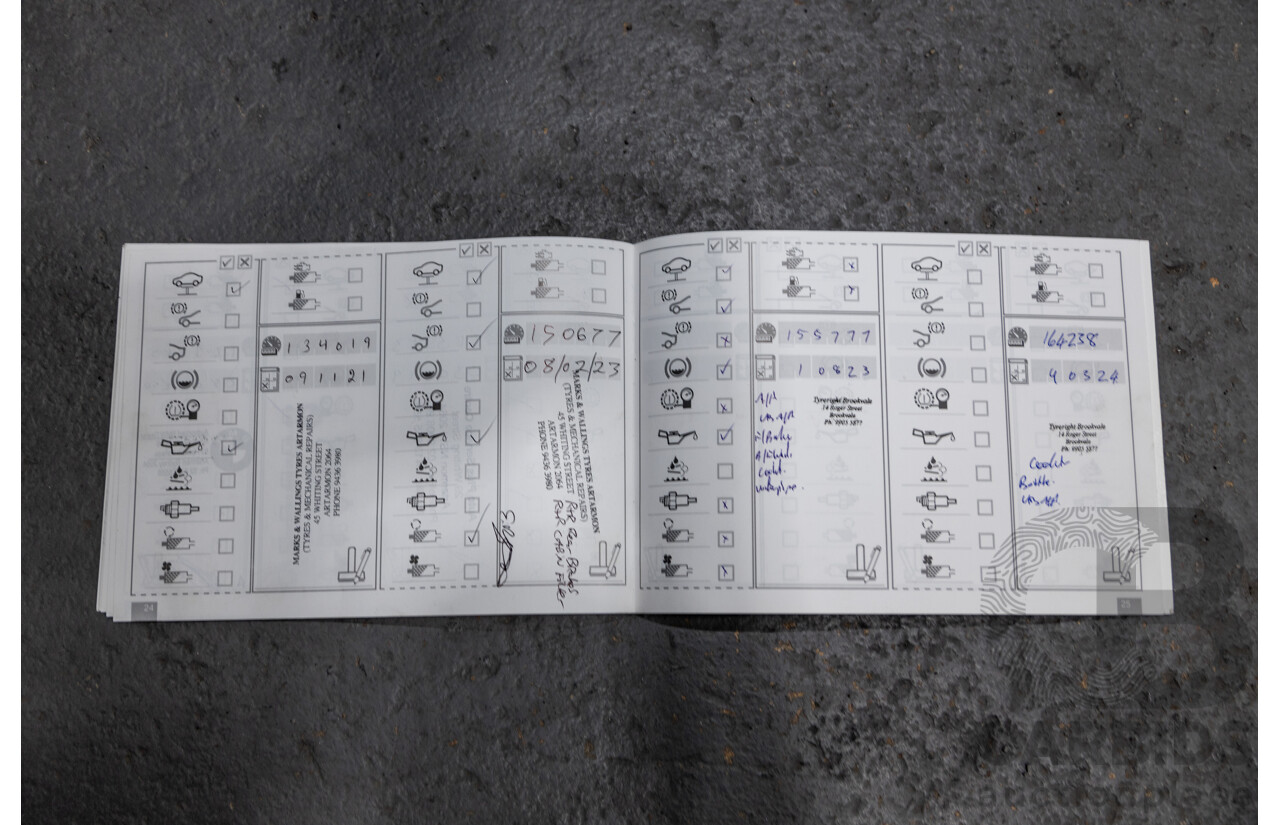 134019
091121
MARKS & WALLINGS TYRES ARTARMON
(TYRES & MECHANICAL REPAIRS)
45 WHITING STREET
ARTARMON 2064
PHONE 9436 3980
24
150677
08/02/23
MARKS & WALLINGS TYRES ARTARMON
(TYRES & MECHANICAL REPAIRS)
45 WHITING STREET
ARTARMON 2064
PHONE 9436 3980
R&R Rear Brakes
R&R CABIN Filter
155777
10823
Tyreright Brookvale
14 Roger Street
Brookvale
Ph. 9905 3877
164238
40324
Tyreright Brookvale
14 Roger Street
Brookvale
Ph. 9905 3877
Coolant
Bottle
25
CARBIDS